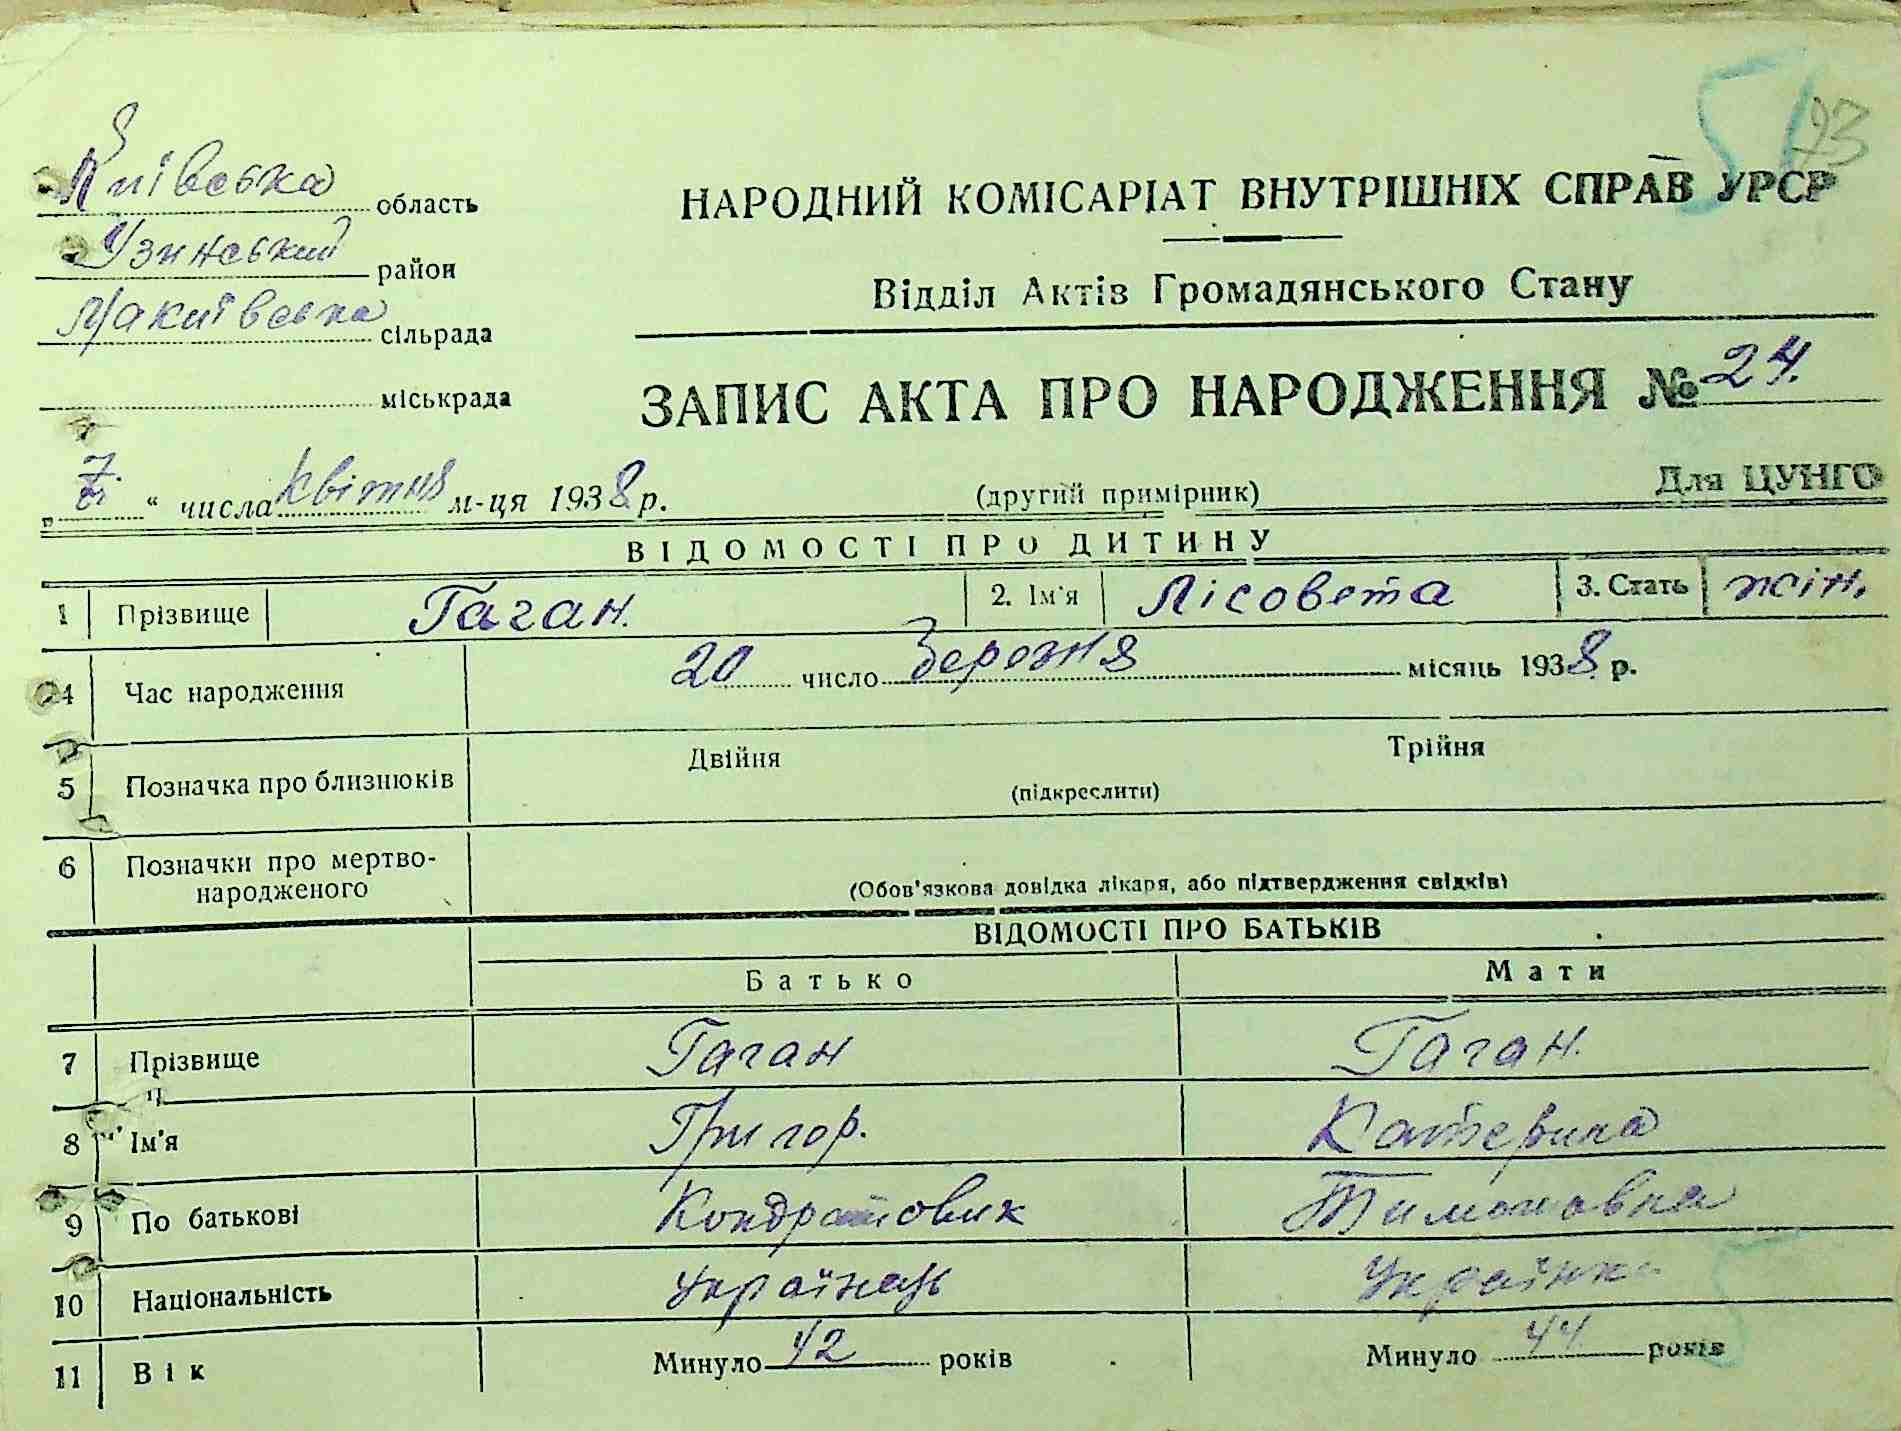 51 93
Київська область
Узинський район
Макиївська сільрада
міськрада
НАРОДНИЙ КОМІСАРІАТ ВНУТРІШНІХ СПРАВ УРСР
Відділ Актів Громадянського Стану
ЗАПИС АКТА ПРО НАРОДЖЕННЯ № 24.
„ 7. “ числа квітня м-ця 1938 р.
(другий примірник)
Для ЦУНГО
ВІДОМОСТІ ПРО ДИТИНУ
1 Прізвище Гаган. 2. Ім'я Лісовета 3. Стать жін.
4 Час народження 20 число березня місяць 1938 р.
5 Позначка про близнюків Двійня Трійня
(підкреслити)
6 Позначки про мертво-
народженого
(Обов'язкова довідка лікаря, або підтвердження свідків)
ВІДОМОСТІ ПРО БАТЬКІВ
Батько Мати
7 Прізвище Гаган Гаган.
8 Ім'я Григор. Катерина
9 По батькові Кондратович Тимоховна
10 Національність Українець Українка
11 Вік Минуло 42 років Минуло 44 років